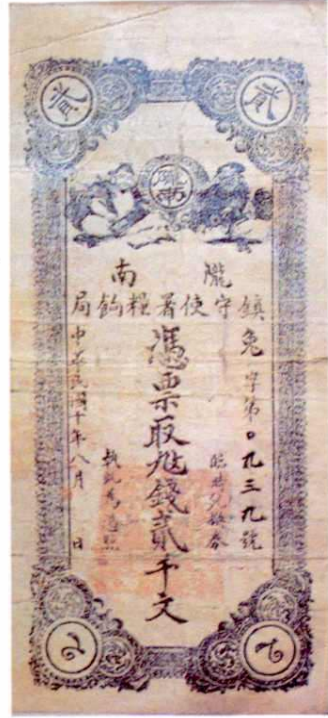 貳 貳
隴南
鎮守使署糧餉局
兔字第〇九三九號
臨時兌換券
憑票取錢貳千文
中華民國十年八月 日